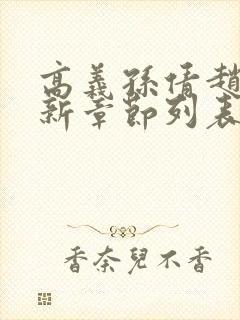 高義孫倩趙
新章節列表
香奈兒不香